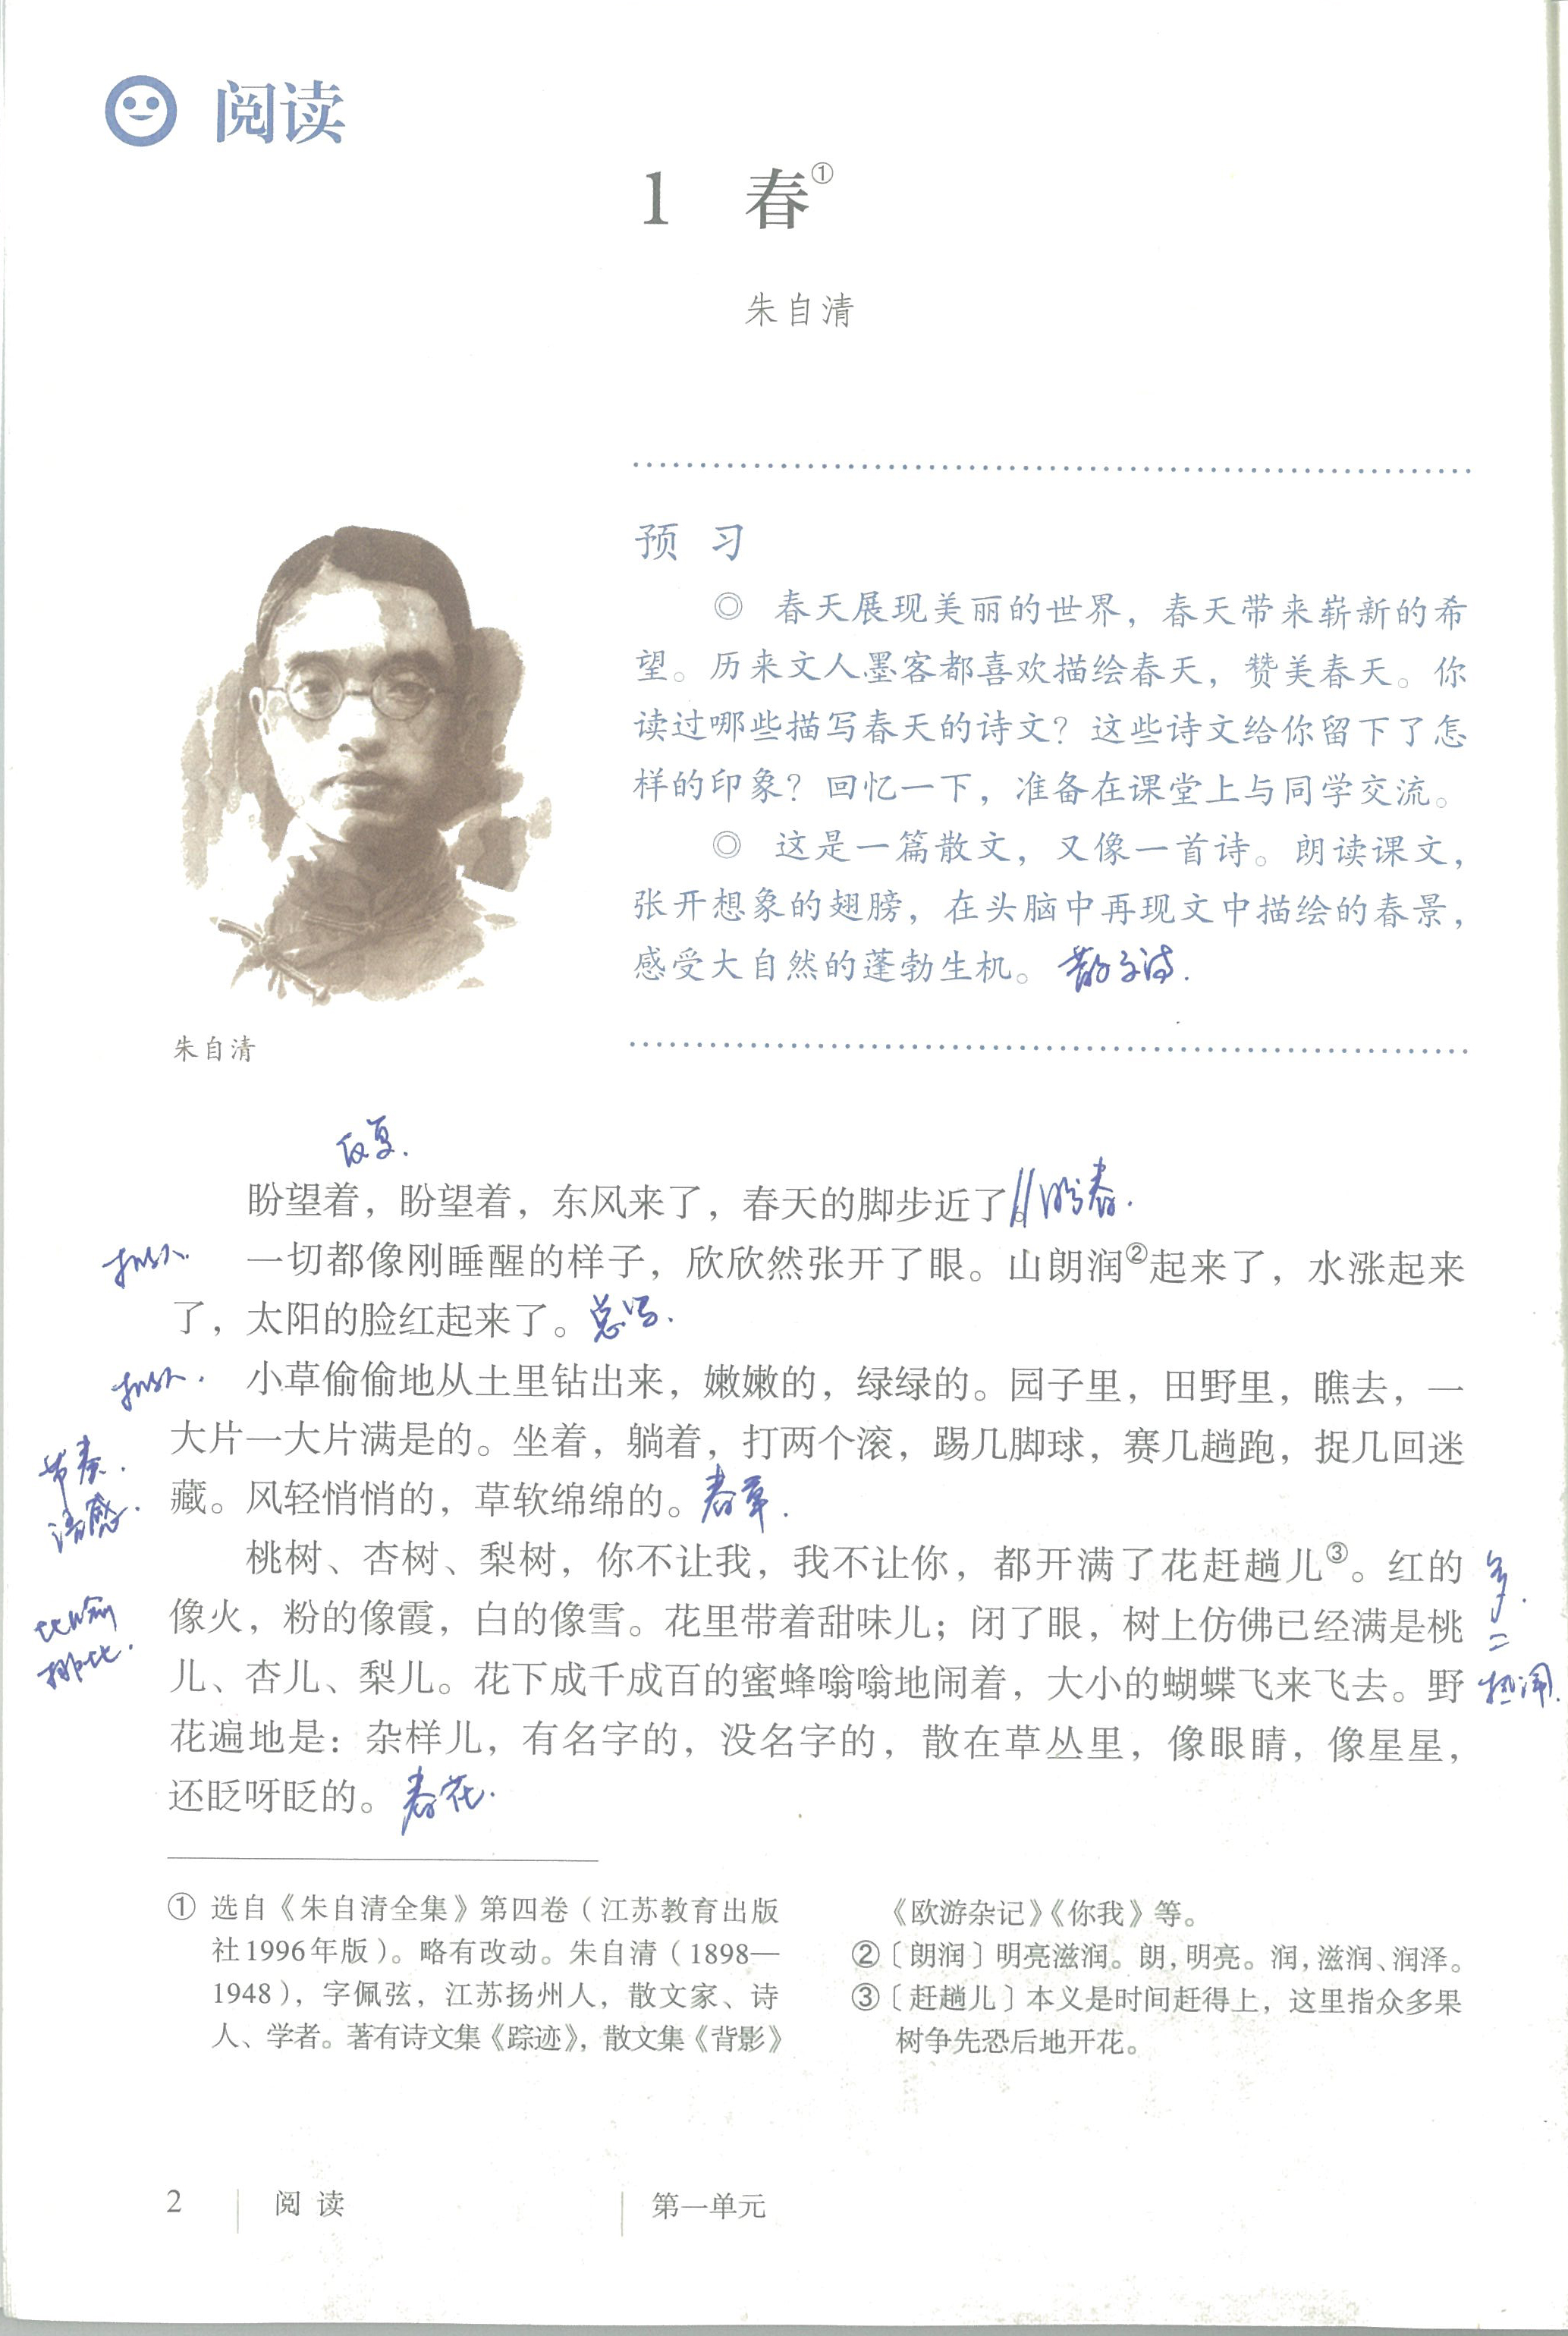 阅读
1 春①
朱自清
预 习
◎ 春天展现美丽的世界，春天带来崭新的希
望。历来文人墨客都喜欢描绘春天，赞美春天。你
读过哪些描写春天的诗文？这些诗文给你留下了怎
样的印象？回忆一下，准备在课堂上与同学交流。
◎ 这是一篇散文，又像一首诗。朗读课文，
张开想象的翅膀，在头脑中再现文中描绘的春景，
感受大自然的蓬勃生机。散文诗.
朱自清
反复.
盼望着，盼望着，东风来了，春天的脚步近了。//盼春.
拟人.
一切都像刚睡醒的样子，欣欣然张开了眼。山朗润②起来了，水涨起来
了，太阳的脸红起来了。总写.
拟人.
小草偷偷地从土里钻出来，嫩嫩的，绿绿的。园子里，田野里，瞧去，一
大片一大片满是的。坐着，躺着，打两个滚，踢几脚球，赛几趟跑，捉几回迷
节奏.
藏。风轻悄悄的，草软绵绵的。春草.
语感.
桃树、杏树、梨树，你不让我，我不让你，都开满了花赶趟儿③。红的
多.
像火，粉的像霞，白的像雪。花里带着甜味儿；闭了眼，树上仿佛已经满是桃
比喻
=
排比.
儿、杏儿、梨儿。花下成千成百的蜜蜂嗡嗡地闹着，大小的蝴蝶飞来飞去。野
热闹.
花遍地是：杂样儿，有名字的，没名字的，散在草丛里，像眼睛，像星星，
还眨呀眨的。春花.
① 选自《朱自清全集》第四卷（江苏教育出版
社1996年版）。略有改动。朱自清（1898—
1948），字佩弦，江苏扬州人，散文家、诗
人、学者。著有诗文集《踪迹》，散文集《背影》
《欧游杂记》《你我》等。
②〔朗润〕明亮滋润。朗，明亮。润，滋润、润泽。
③〔赶趟儿〕本义是时间赶得上，这里指众多果
树争先恐后地开花。
2 阅 读 第一单元